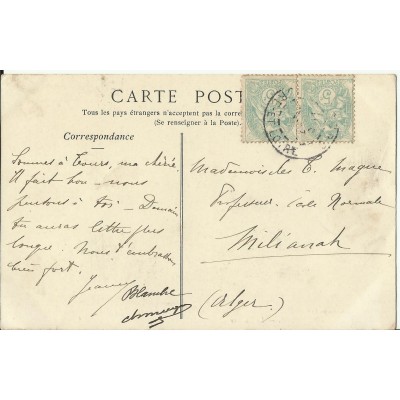 CARTE POST
Tous les pays étrangers n'acceptent pas la corre
(Se renseigner à la Poste).
Correspondance
Sommes à Tours, ma chérie.
Il fait bon - nous
pensons à toi - Demain
tu auras lettre plus
longue. Nous t'embrassons
bien fort.
Jeanne
Blanche
Mademoiselle E. Magne
Professeur École Normale
Milianah
(Alger)
5
5